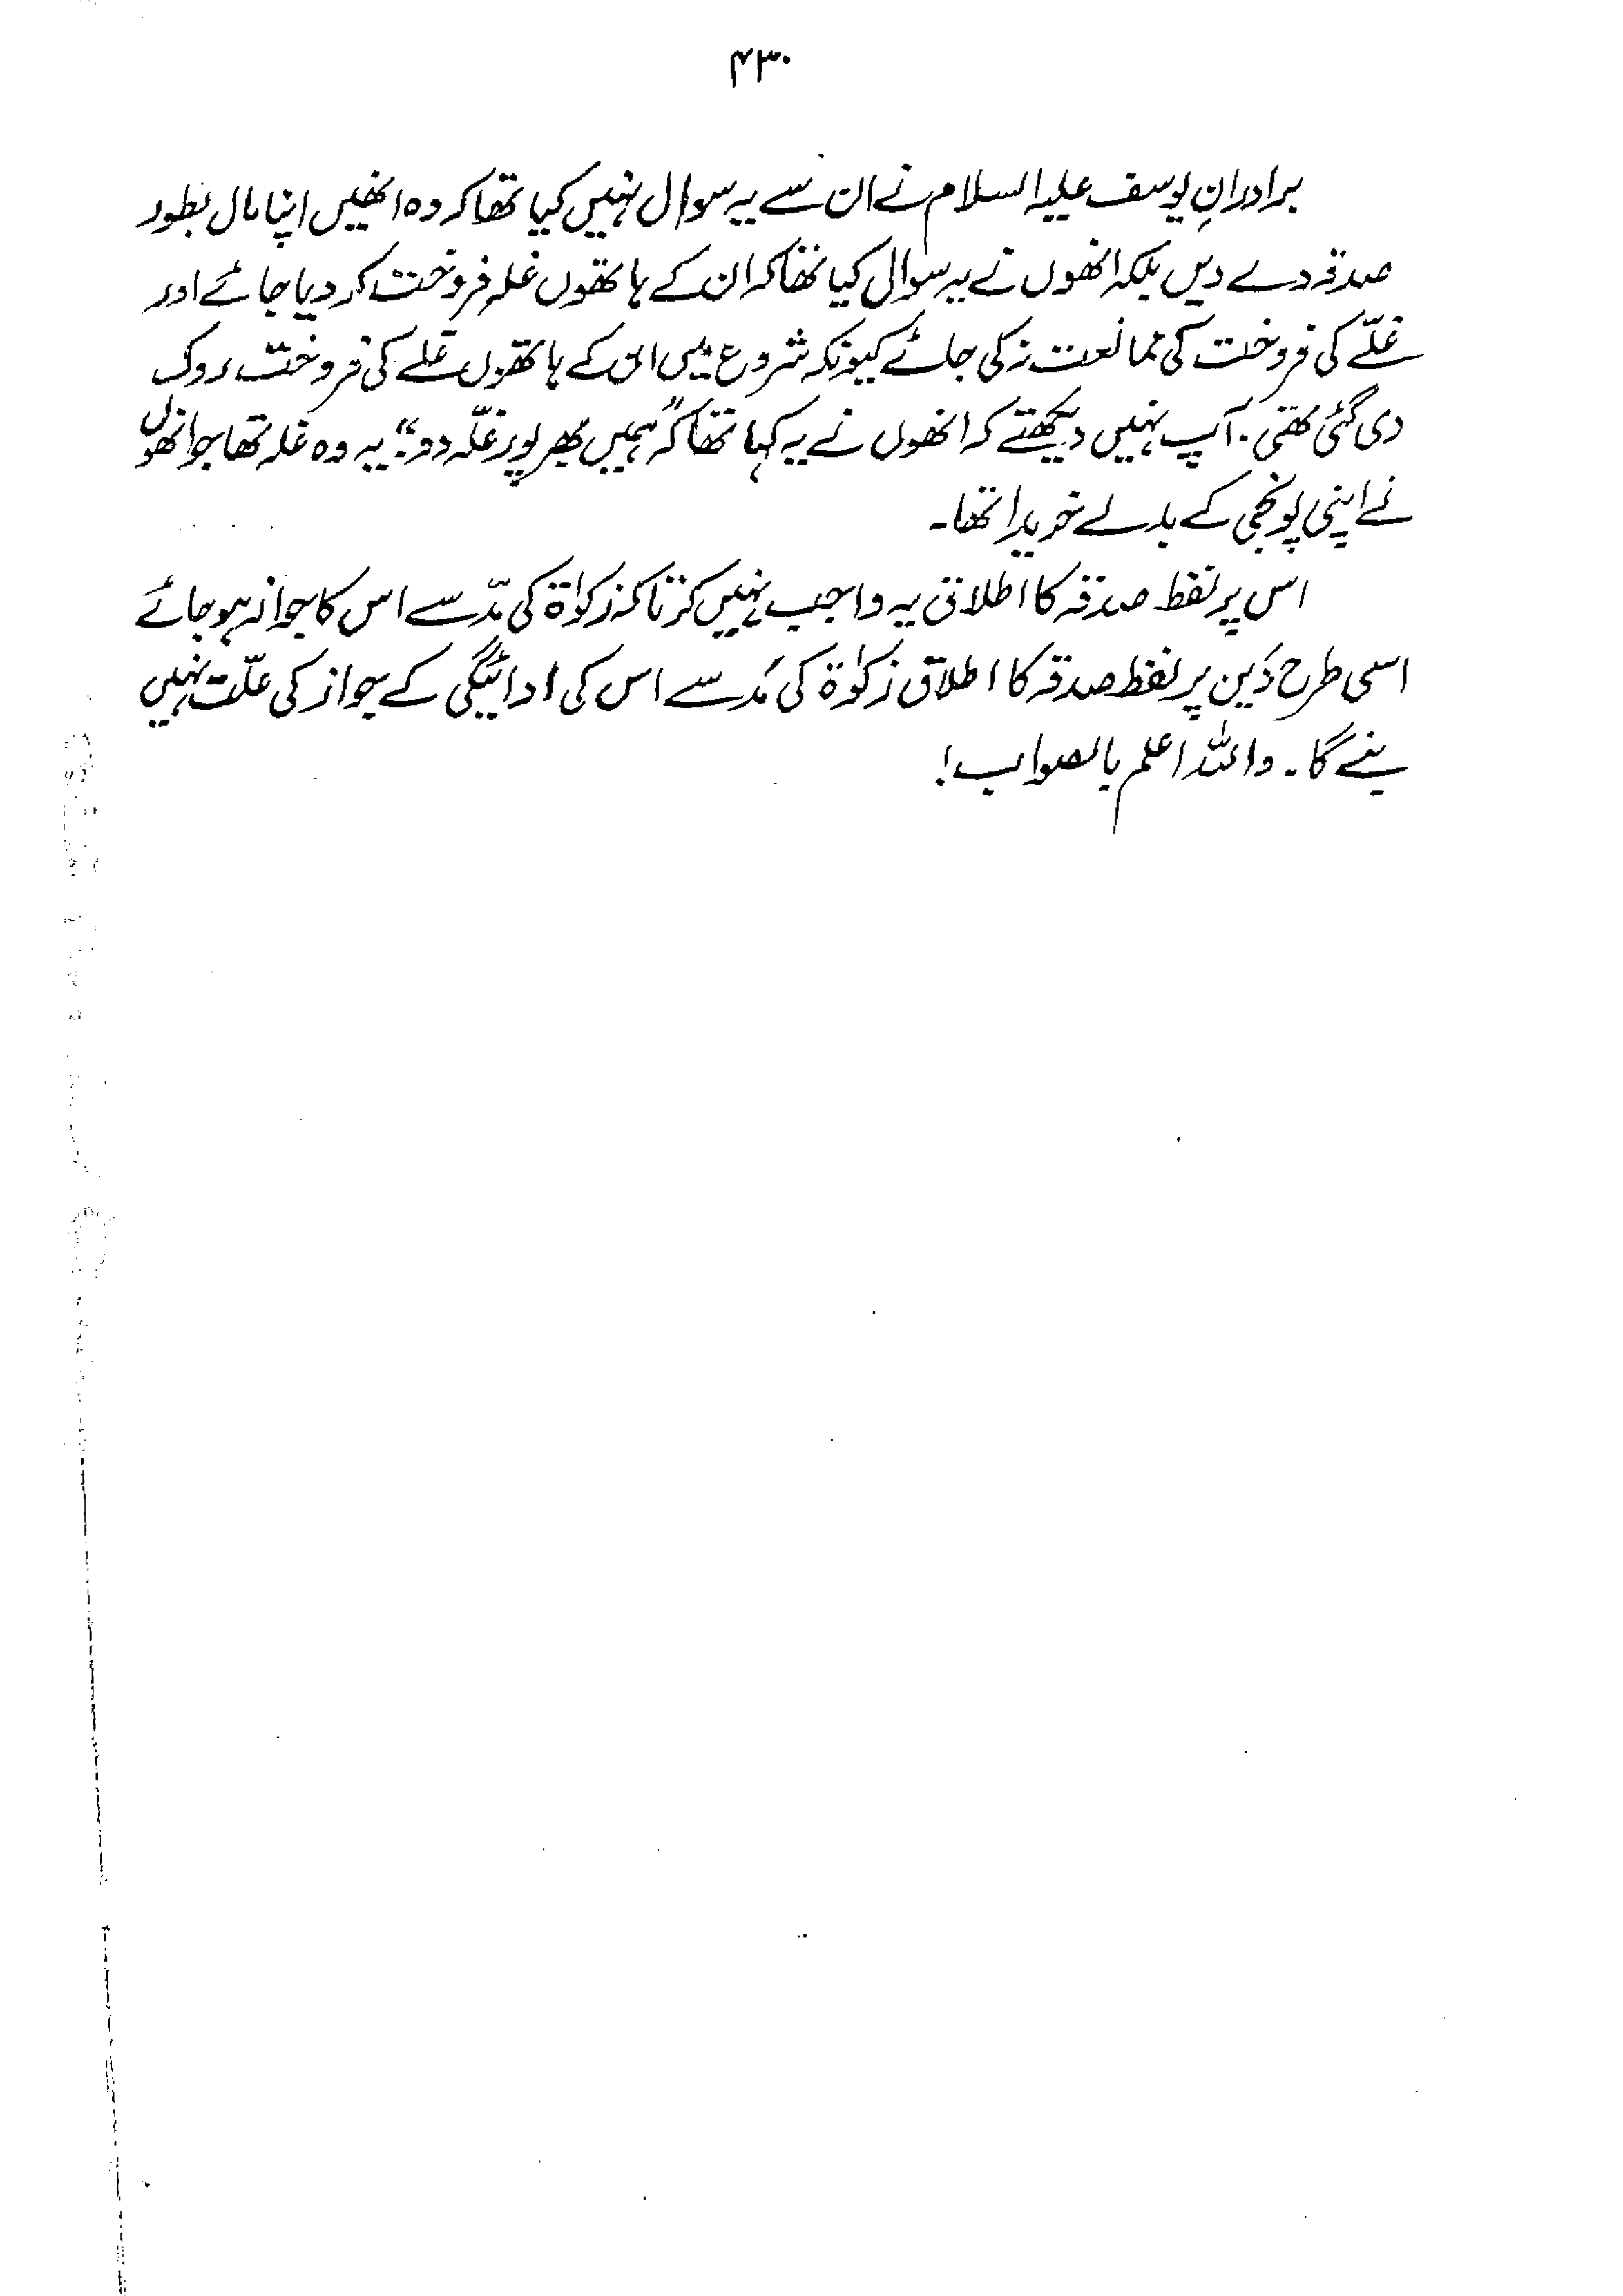 ۴۳۰
برادرانِ یوسف علیہ السلام نے ان سے یہ سوال نہیں کیا تھا کہ وہ انھیں اپنا مال بطور
صدقہ دے دیں بلکہ انھوں نے یہ سوال کیا تھا کہ ان کے ہاتھوں غلہ فروخت کر دیا جائے اور
غلّے کی فروخت کی ممانعت نہ کی جائے کیونکہ شروع میں ان کے ہاتھوں غلے کی فروخت روک
دی گئی تھی۔ آپ نہیں دیکھتے کہ انھوں نے یہ کہا تھا کہ "ہمیں بھرپور غلّہ دو"؛ یہ وہ غلہ تھا جو انھوں
نے اپنی پونجی کے بدلے خریدا تھا۔
اس پر لفظ صدقہ کا اطلاق یہ واجب نہیں کرتا کہ زکوٰۃ کی مدّ سے اس کا جواز ہو جائے
اسی طرح دَین پر لفظ صدقہ کا اطلاق زکوٰۃ کی مَد سے اس کی ادائیگی کے جواز کی علّت نہیں
بنے گا۔ واللہ اعلم بالصواب!